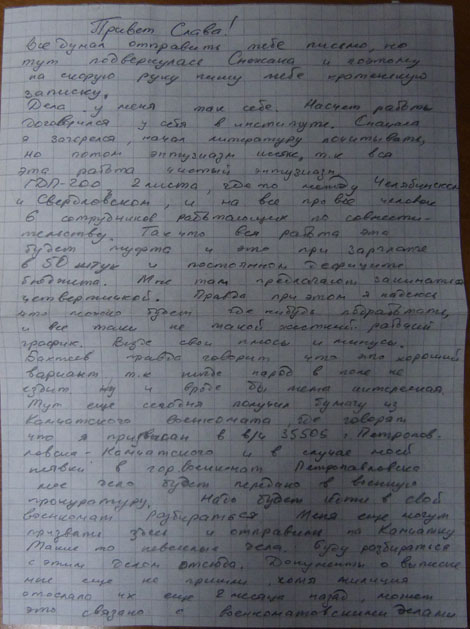 Привет Слава!
Все думал отправить тебе письмо, но
тут подвернулась Снежана и поэтому
на скорую руку пишу тебе кратенькую
записку.
Дела у меня так себе. Насчет работы
договорился у себя в институте. Сначала
я загорелся, начал литературу почитывать,
но потом энтузиазм исчез, т.к вся
эта работа чистый энтузиазм.
ГДП-200, 2 листа, где то между Челябинском
и Свердловском, и на все про все человек
6 сотрудников работающих по совмести-
тельству. Так что вся работа это
будет муфта и это при зарплате
в 50 штук и постоянном дефиците
бюджета. Мне там предлагают заниматься
четвертичкой. Правда при этом я надеюсь
что можно будет где нибудь подрабатывать,
и все таки не такой жесткий рабочий
график. Везде свои плюсы и минусы.
правда говорит что это хороший
вариант, т.к народ в поле не
ездит ну и вроде бы тема интересная.
Тут еще сегодня получил бумагу из
Камчатского военкомата где говорят
что я приписан в в/ч 35506 г Петропав-
ловска-Камчатского и в случае моей
неявки в гор.военкомат Петропавловска
мое дело будет передано в военную
прокуратуру. Надо будет идти в свой
военкомат разбираться. Меня еще могут
призвать здесь и отправить на Камчатку
Такие то невеселые дела. Буду разбираться
с этим делом отсюда. Документы о выписке
мне еще не пришли, хотя милиция
отослала их еще 2 месяца назад, может
это связано с военкоматовскими делами